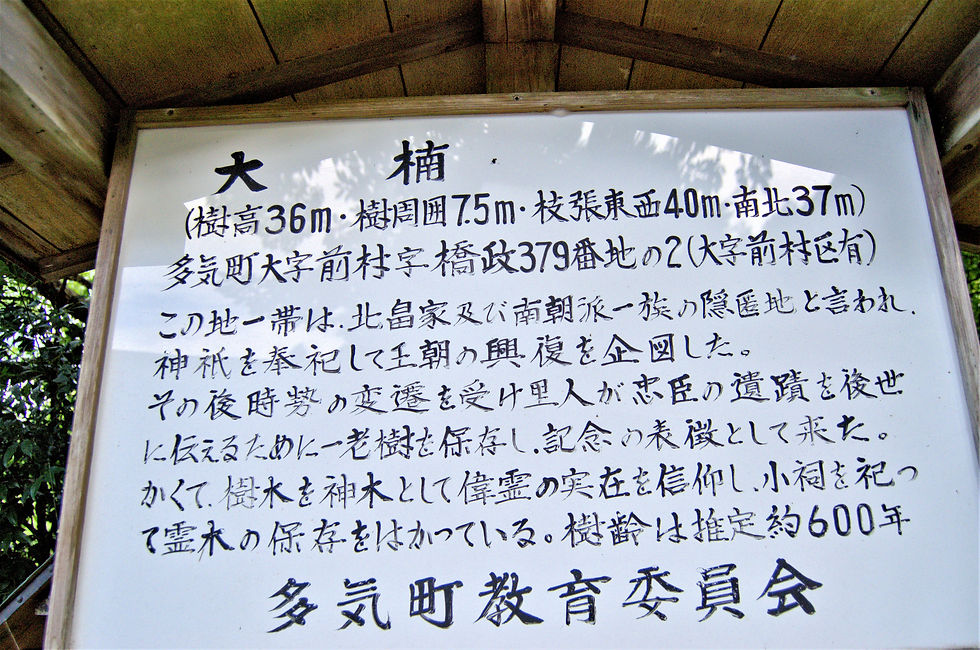 大楠
(樹高36m・樹周囲7.5m・枝張東西40m・南北37m)
多気町大字前村字橋政379番地の2(大字前村区有)
この地一帯は、北畠家及び南朝派一族の隠匿地と言われ、
神祇を奉祀して王朝の興復を企図した。
その後時勢の変遷を受け里人が忠臣の遺蹟を後世
に伝えるために一老樹を保存し、記念の表徴として来た。
かくて、樹木を神木として偉霊の実在を信仰し、小祠を祀っ
て霊木の保存をはかっている。樹齢は推定約600年
多気町教育委員会